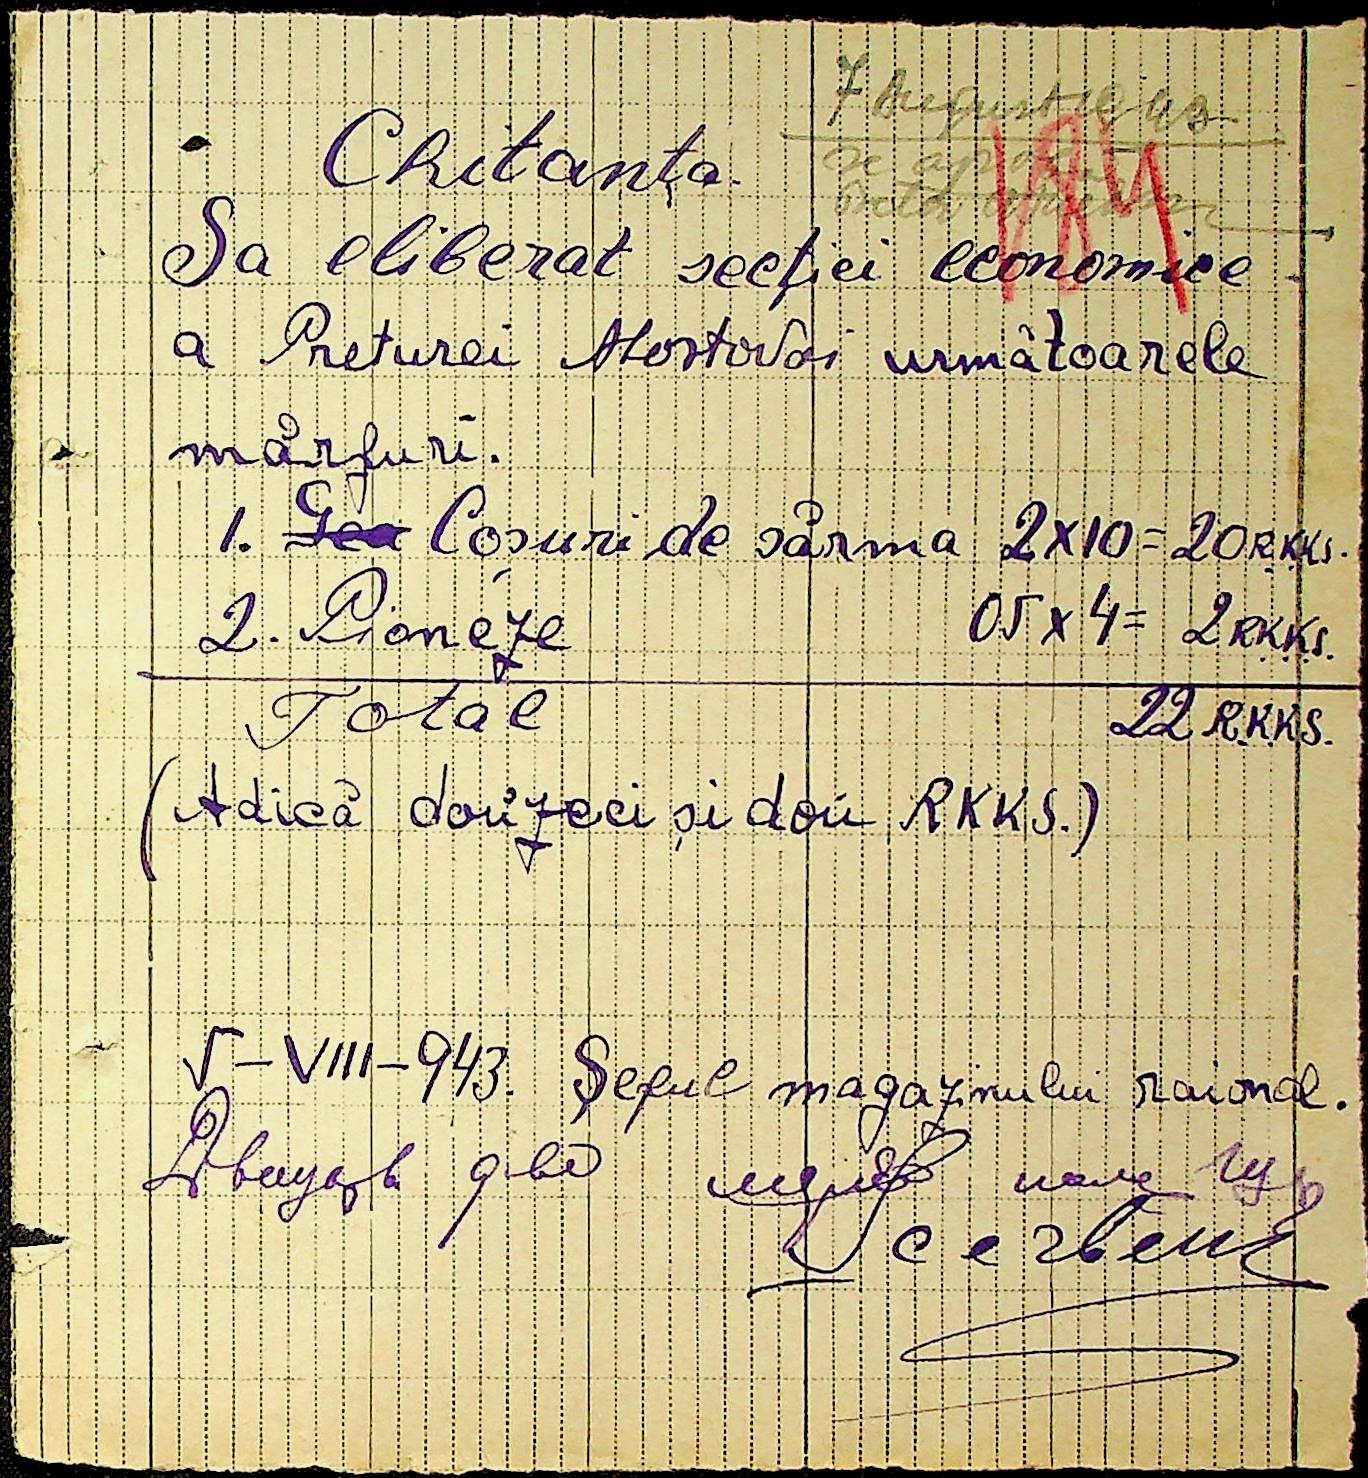 7 August 1943
184
se aprobă
Chitanța.
Sa eliberat secției economice
a Preturei Mostovoi următoarele
mărfuri.
1. Coșuri de sârma 2x10=20 R.K.K.S.
2. Pioneze 05x4= 2 R.K.K.S.
Total 22 R.K.K.S.
(Adică douăzeci și două RKKS.)
5-VIII-943. Șeful magazinului raional.
Двацать две